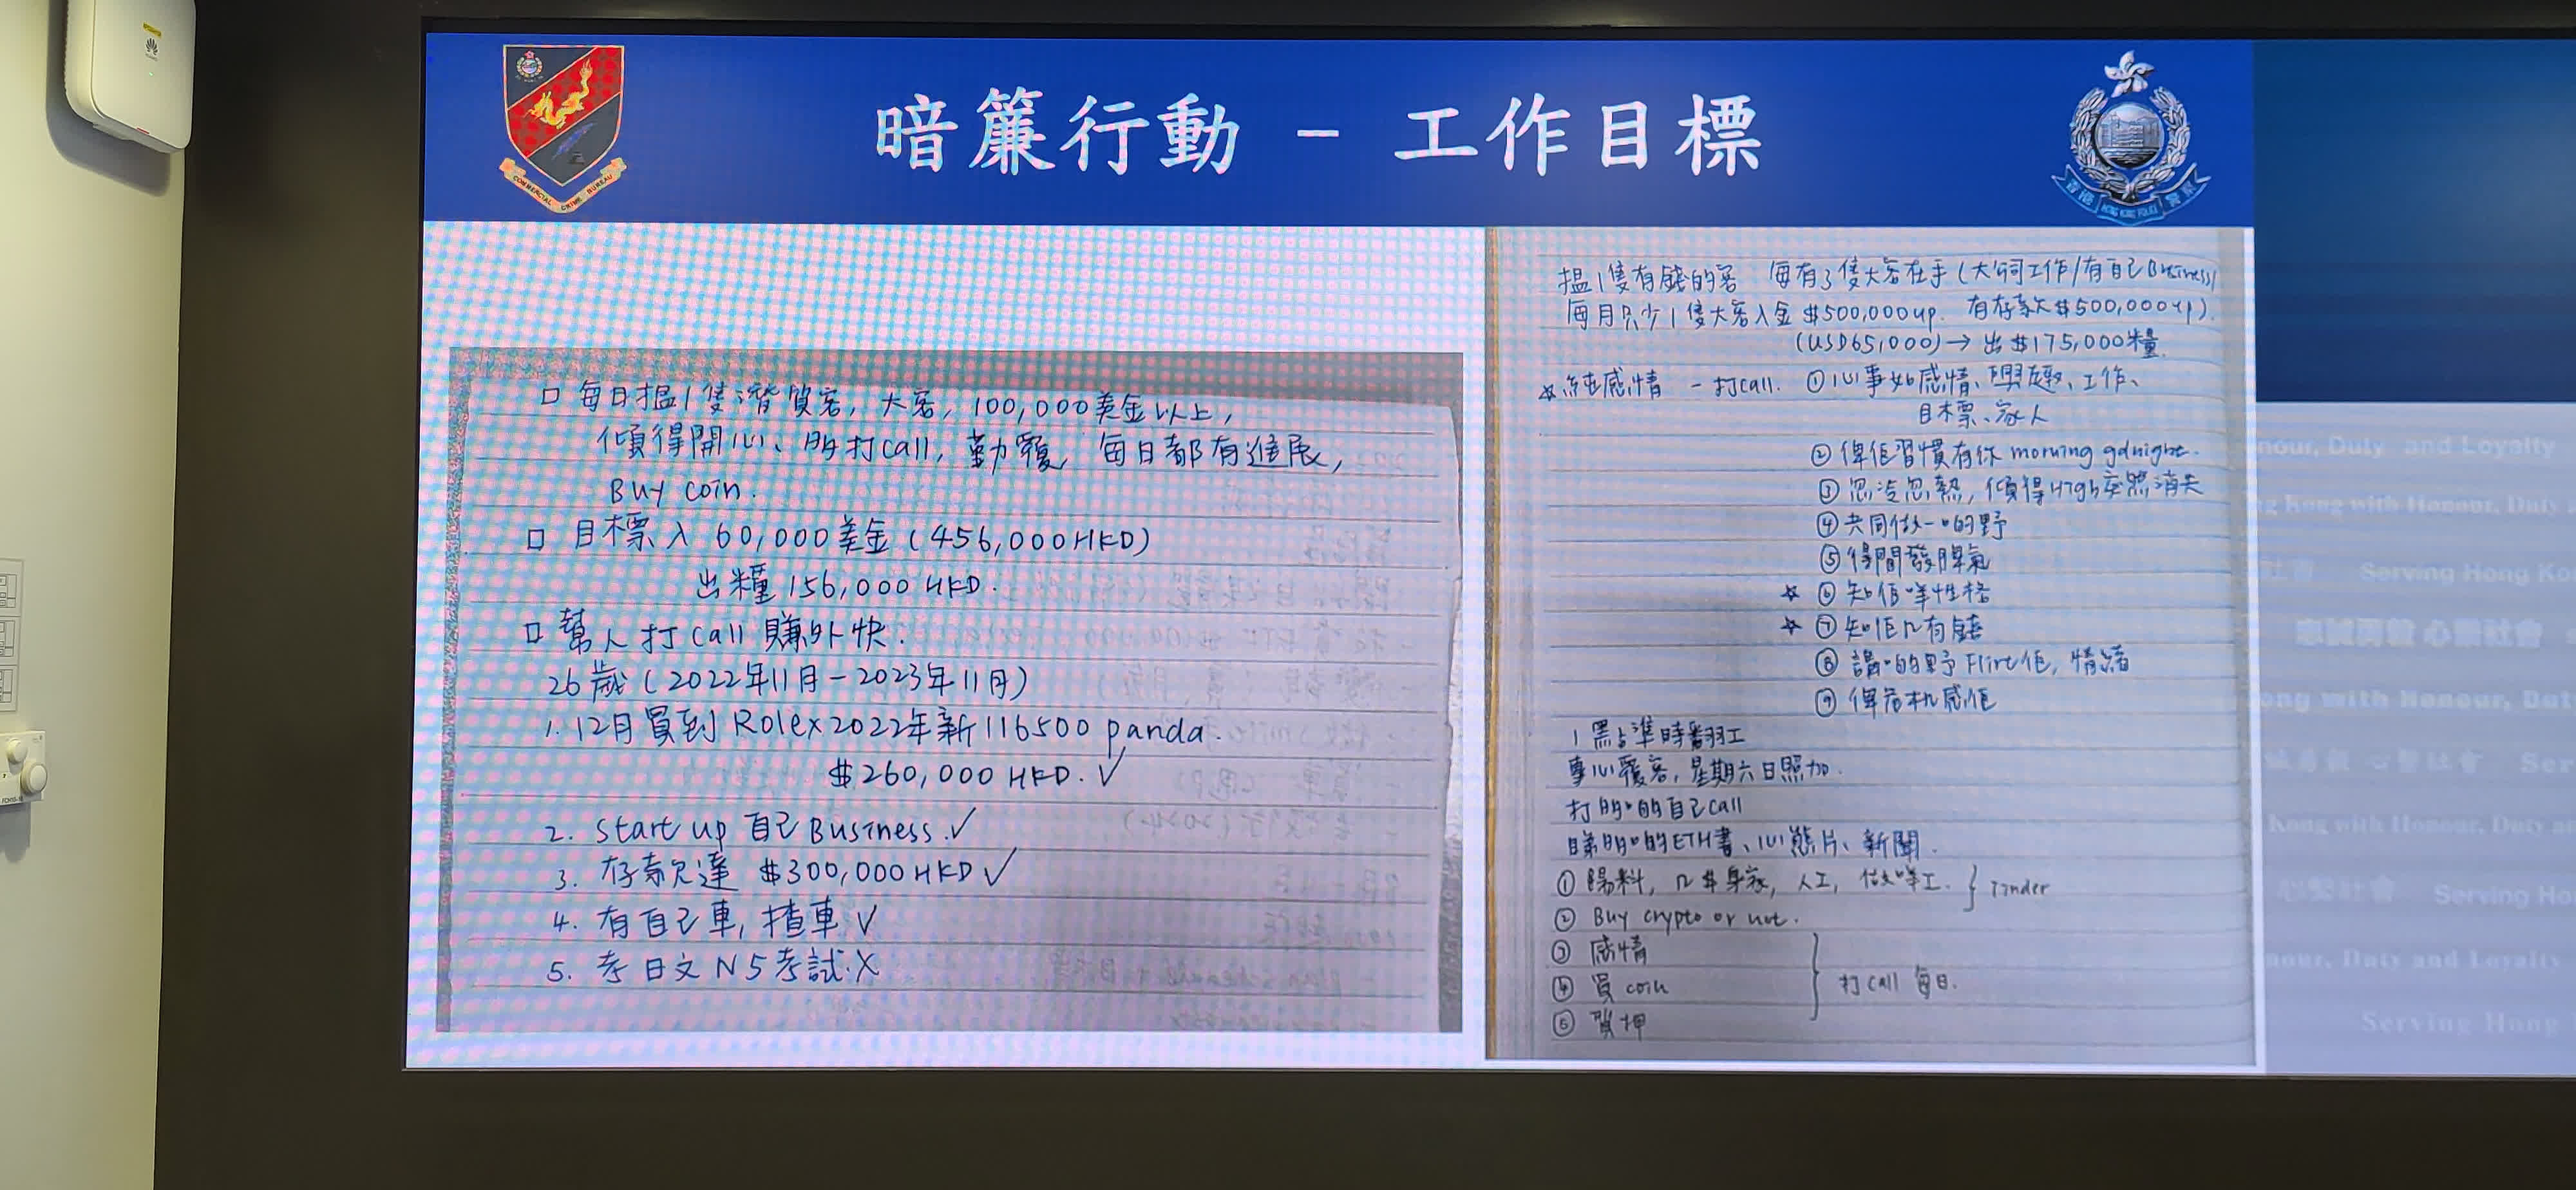 暗簾行動 - 工作目標
COMMERCIAL CRIME BUREAU
香港警察
HONG KONG POLICE
□ 每日搵1隻潛質客, 大客, 100,000美金以上,
傾得開心、多打call, 勤覆, 每日都有進展,
Buy coin.
□ 目標入 60,000美金 (456,000HKD)
出糧 156,000 HKD.
□ 幫人打 call 賺外快.
26歲 (2022年11月-2023年11月)
1. 12月買到 Rolex 2022年新 116500 panda.
$260,000 HKD. ✓
2. Start up 自己 Business. ✓
3. 存款達 $300,000 HKD ✓
4. 有自己車, 揸車 ✓
5. 考日文 N5 考試. X
搵1隻有錢的客 每有3隻大客在手 (大公司工作/有自己Business)
每月只少1隻大客入金 $500,000up. 有存款$500,000up).
(USD65,000) → 出$175,000糧
☆純感情 - 打call. ① 心事如感情、興趣、工作、
目標、家人
② 俾佢習慣有你 morning gdnight.
③ 忽冷忽熱, 傾得High突然消失
④ 共同做一啲野
⑤ 得閒發脾氣
☆ ⑥ 知佢咩性格
☆ ⑦ 知佢几有錢
⑧ 講啲野 Flirt佢, 情緒
⑨ 俾危机感佢
1點準時翻工
專心覆客, 星期六日照加.
打多啲自己call
睇多啲ETH書、心態片、新聞.
① 賜料, 几$身家, 人工, 做咩工. } Tinder
② Buy crypto or not.
③ 感情
④ 買 coin } 打call 每日.
⑤ 質押
nour, Duty and Loyalty
Kong with Honour, Duty
社會 Serving Hong Ko
心繫社會
ong with Honour, Dut
心繫社會 Ser
Kong with Honour, Duty a
心繫社會 Serving Ho
nour, Duty and Loyalty
Serving Hong